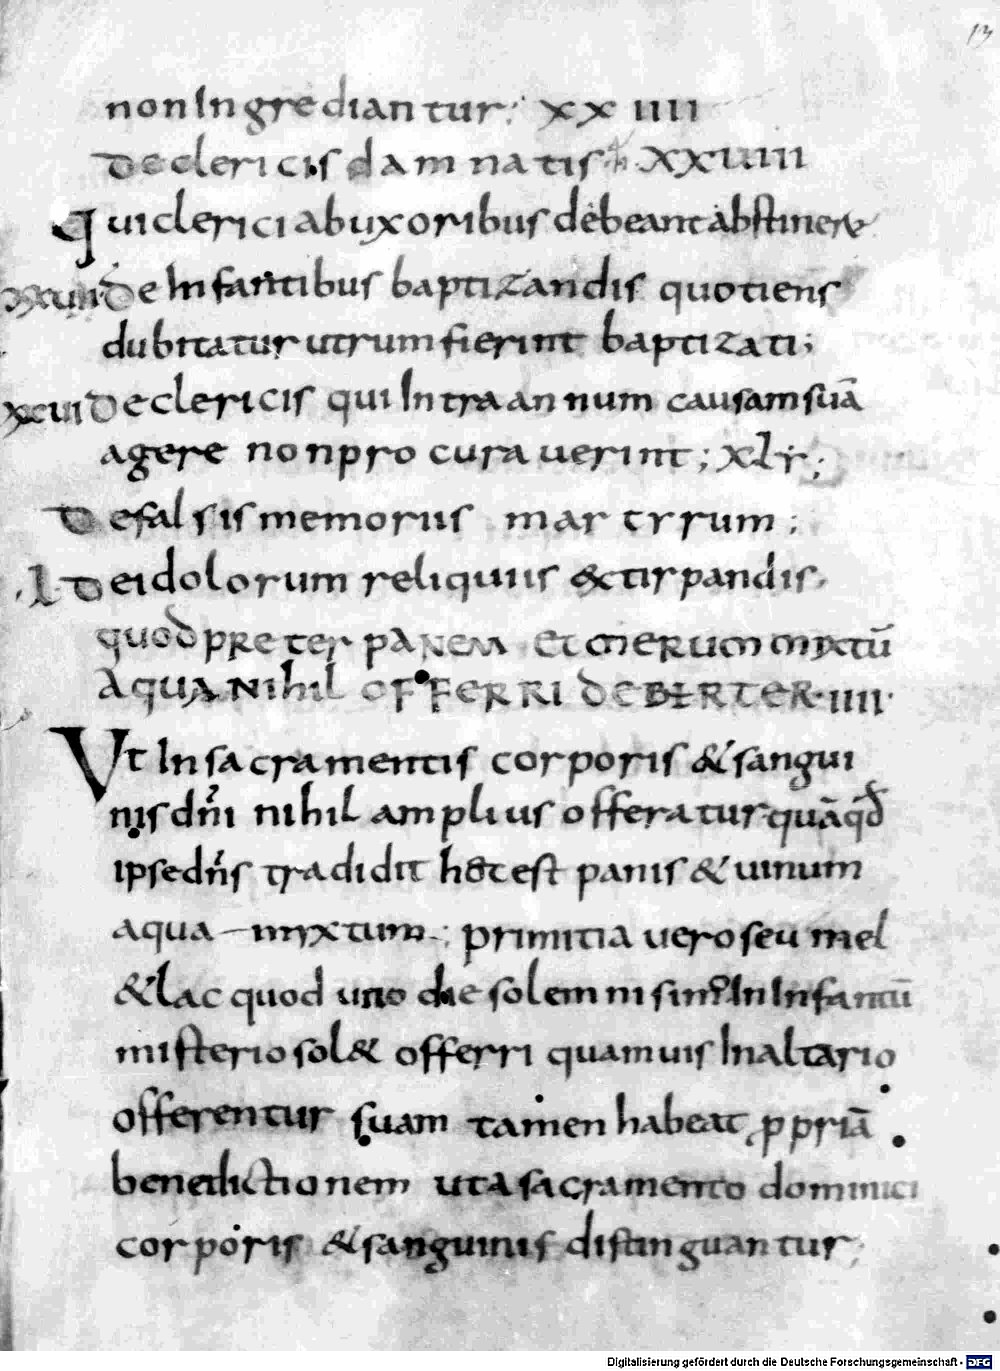 13
non Ingrediantur; xx iiii
De clericis damnatis xxuiiii
Qui clerici ab uxoribus debeant abstinere
xxxuiii De Infantibus baptizandis quotiens
dubitatur utrum fierint baptizati;
xcui De clericis qui Intra annum causam suā
agere non procurauerint; xlv;
De falsis memoriis martyrum;
l De idolorum reliquiis &tirpandis,
quod preter panem et merum mixtū
aqua nihil offerri debert
Ut In sacramentis corporis & sangui
nis dn̄i nihil amplius offeratur quā qđ
ipse dn̄s tradidit hoc est panis & uinum
aqua mixtum; primitia uero seu mel
& lac quod uno die solemnisimo In Infantū
misterio sol& offerri quamuis In altario
offerentur suam tamen habeat ppriā
benedictionem ut a sacramento dominici
corporis & sanguinis distinguantur;
Digitalisierung gefördert durch die Deutsche Forschungsgemeinschaft - DFG